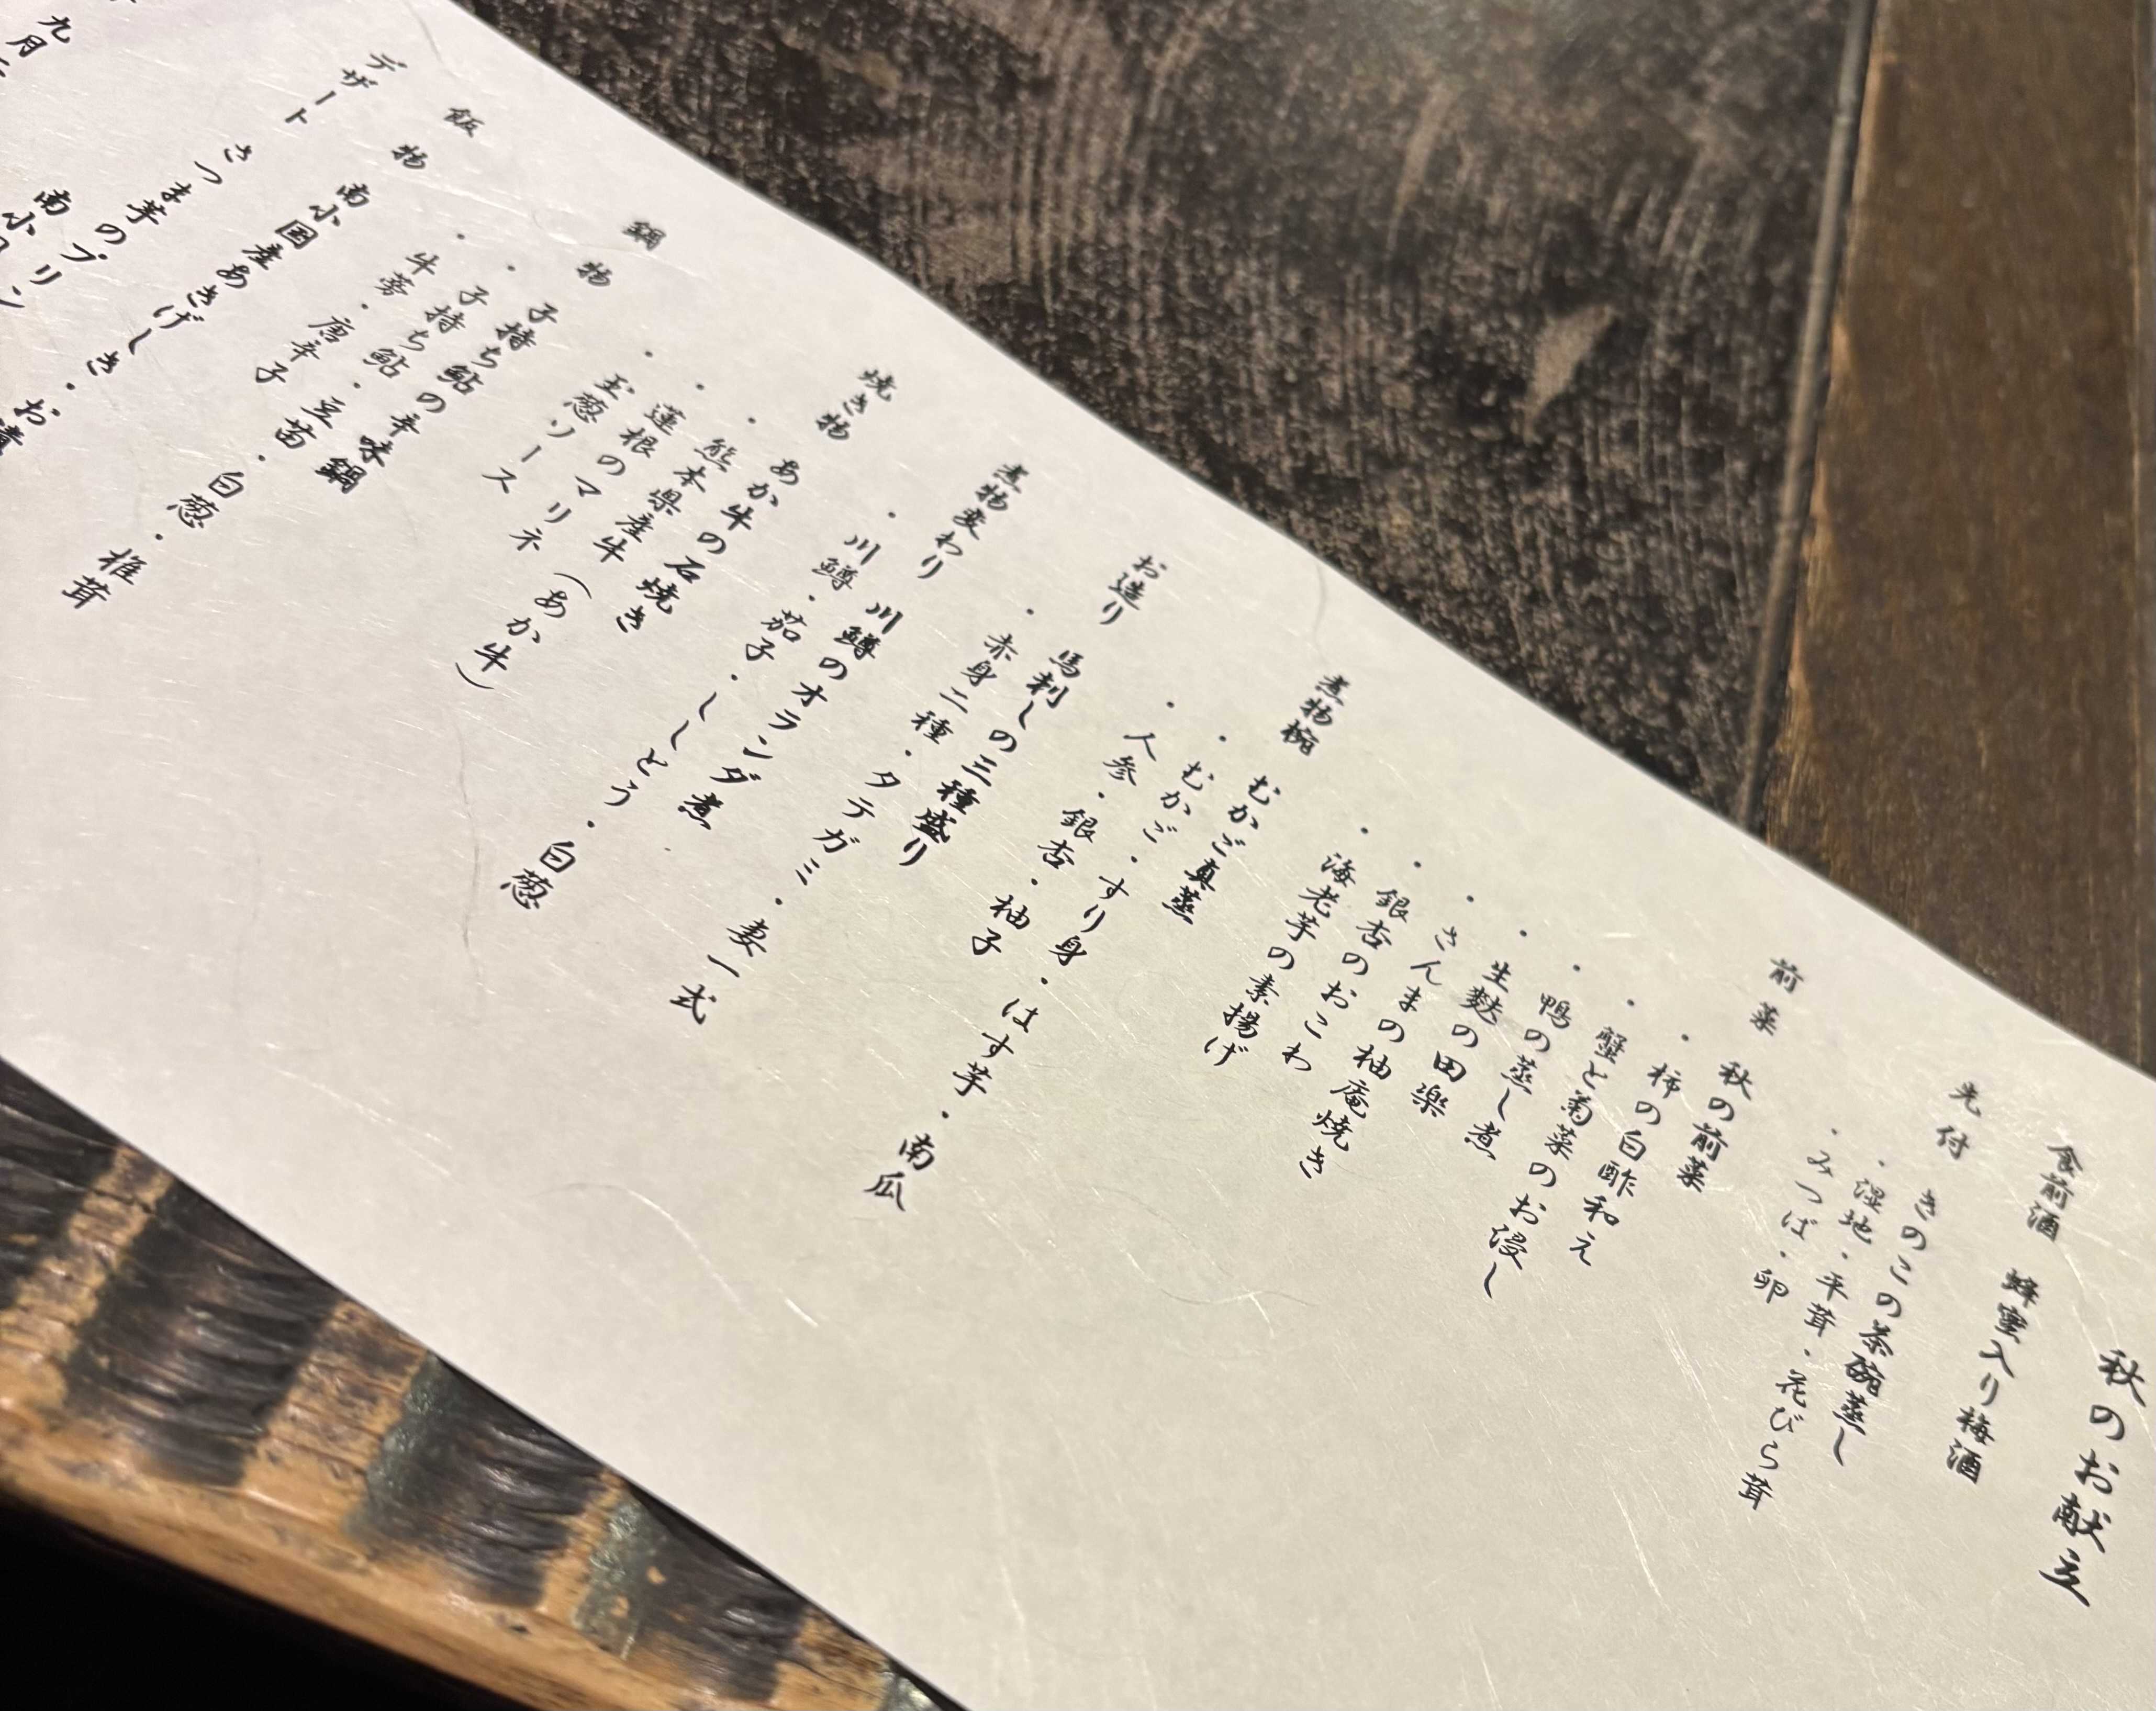 秋のお献立
食前酒 蜂蜜入り梅酒
先付 きのこの茶碗蒸し
・湿地・平茸・花びら茸
・みつば・卵
前菜 秋の前菜
・柿の白酢和え
・蟹と菊菜のお浸し
・鴨の蒸し煮
・生麩の田楽
・さんまの柚庵焼き
・銀杏のおこわ
・海老芋の素揚げ
煮物椀 むかご真蒸
・むかご・すり身・はす芋・南瓜
・人参・銀杏・柚子
お造り 馬刺しの三種盛り
・赤身二種・タテガミ・妻一式
煮物変わり 川鱒のオランダ煮
・川鱒・茄子・ししとう・白葱
焼き物 あか牛の石焼き
・熊本県産牛(あか牛)
・蓮根のマリネ
・玉葱ソース
鍋物 子持ち鮎の辛味鍋
・子持ち鮎・豆苗・白葱・椎茸
・牛蒡・唐辛子
飯物 南小国産あきげしき・お漬
デザート さつま芋のプリン
南小
九月